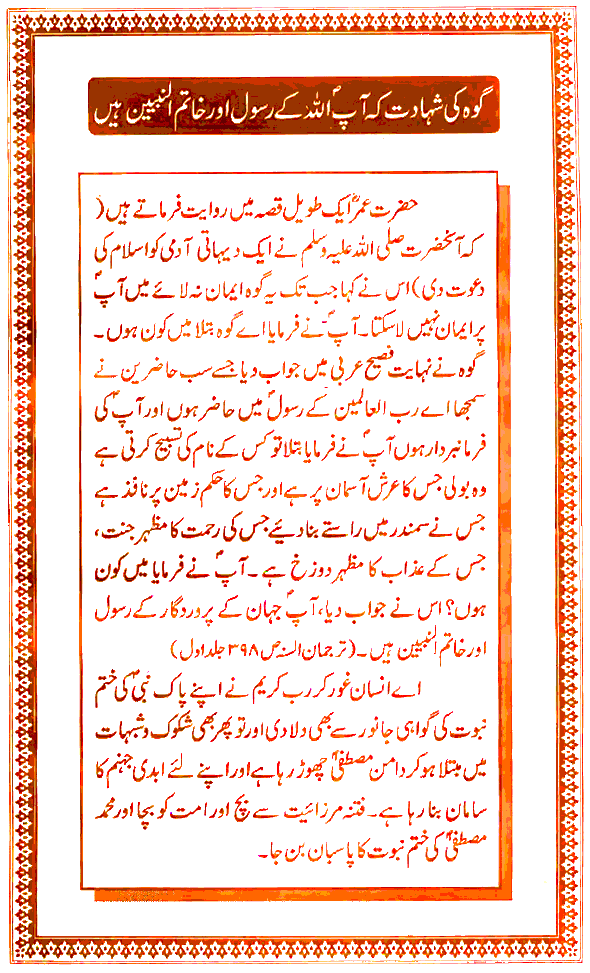 گوہ کی شہادت کہ آپؐ اللہ کے رسول اور خاتم النبیین ہیں
حضرت عمرؓ ایک طویل قصہ میں روایت فرماتے ہیں (
کہ آنحضرت صلی اللہ علیہ وسلم نے ایک دیہاتی آدمی کو اسلام کی
دعوت دی) اس نے کہا جب تک یہ گوہ ایمان نہ لائے میں آپؐ
پر ایمان نہیں لا سکتا۔ آپؐ نے فرمایا اے گوہ بتلا میں کون ہوں۔
گوہ نے نہایت فصیح عربی میں جواب دیا جسے سب حاضرین نے
سمجھا اے رب العالمین کے رسولؐ میں حاضر ہوں اور آپؐ کی
فرمانبردار ہوں آپؐ نے فرمایا بتلا تو کس کے نام کی تسبیح کرتی ہے
وہ بولی جس کا عرش آسمان پر ہے اور جس کا حکم زمین پر نافذ ہے
جس نے سمندر میں راستے بنا دیئے جس کی رحمت کا مظہر جنت،
جس کے عذاب کا مظہر دوزخ ہے۔ آپؐ نے فرمایا میں کون
ہوں؟ اس نے جواب دیا، آپؐ جہان کے پروردگار کے رسول
اور خاتم النبیین ہیں۔ (ترجمان السنہ ص ۳۹۸ جلد اول)
اے انسان غور کر رب کریم نے اپنے پاک نبیؐ کی ختم
نبوت کی گواہی جانور سے بھی دلا دی اور تو پھر بھی شکوک و شبہات
میں مبتلا ہو کر دامن مصطفیؐ چھوڑ رہا ہے اور اپنے لئے ابدی جہنم کا
سامان بنا رہا ہے۔ فتنہ مرزائیت سے بچ اور امت کو بچا اور محمد
مصطفیؐ کی ختم نبوت کا پاسبان بن جا۔